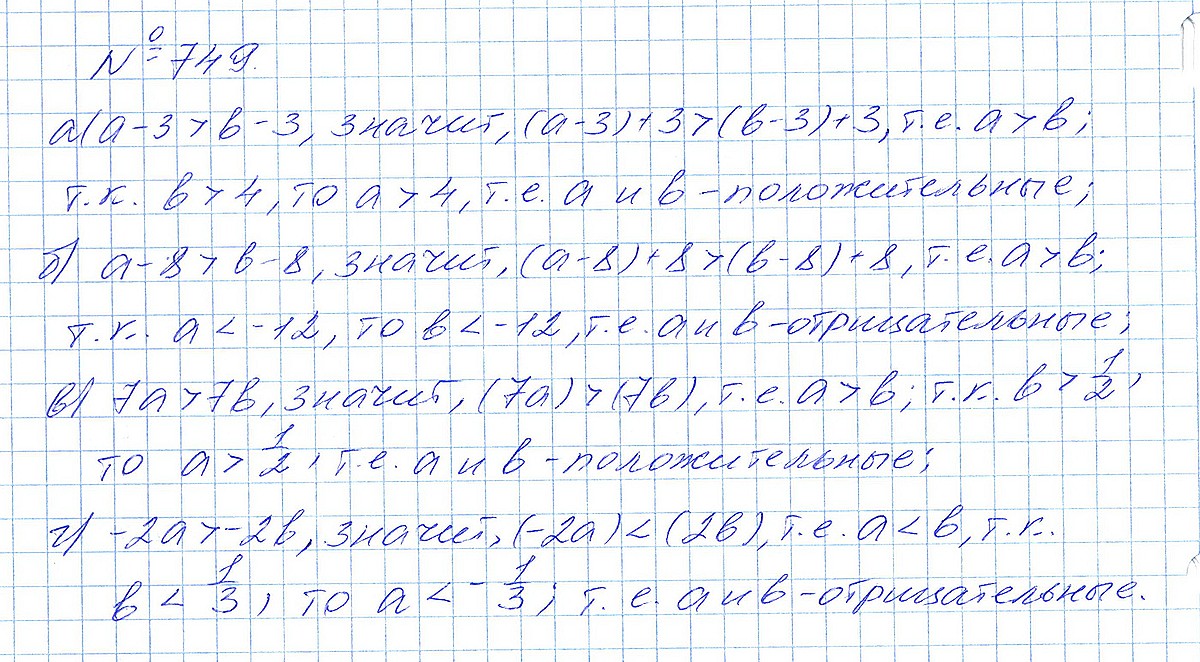 № 749.
а) a-3>b-3, значит, (a-3)+3>(b-3)+3, т.е. a>b;
т.к. b>4, то a>4, т.е. a и b - положительные;
б) a-8>b-8, значит, (a-8)+8>(b-8)+8, т.е. a>b;
т.к. a<-12, то b<-12, т.е. a и b - отрицательные;
в) 7a>7b, значит, (7a)>(7b), т.е. a>b; т.к. b>1/2,
то a>1/2, т.е. a и b - положительные;
г) -2a>-2b, значит, (-2a)<(2b), т.е. a<b, т.к.
b<1/3, то a<-1/3; т.е. a и b - отрицательные.